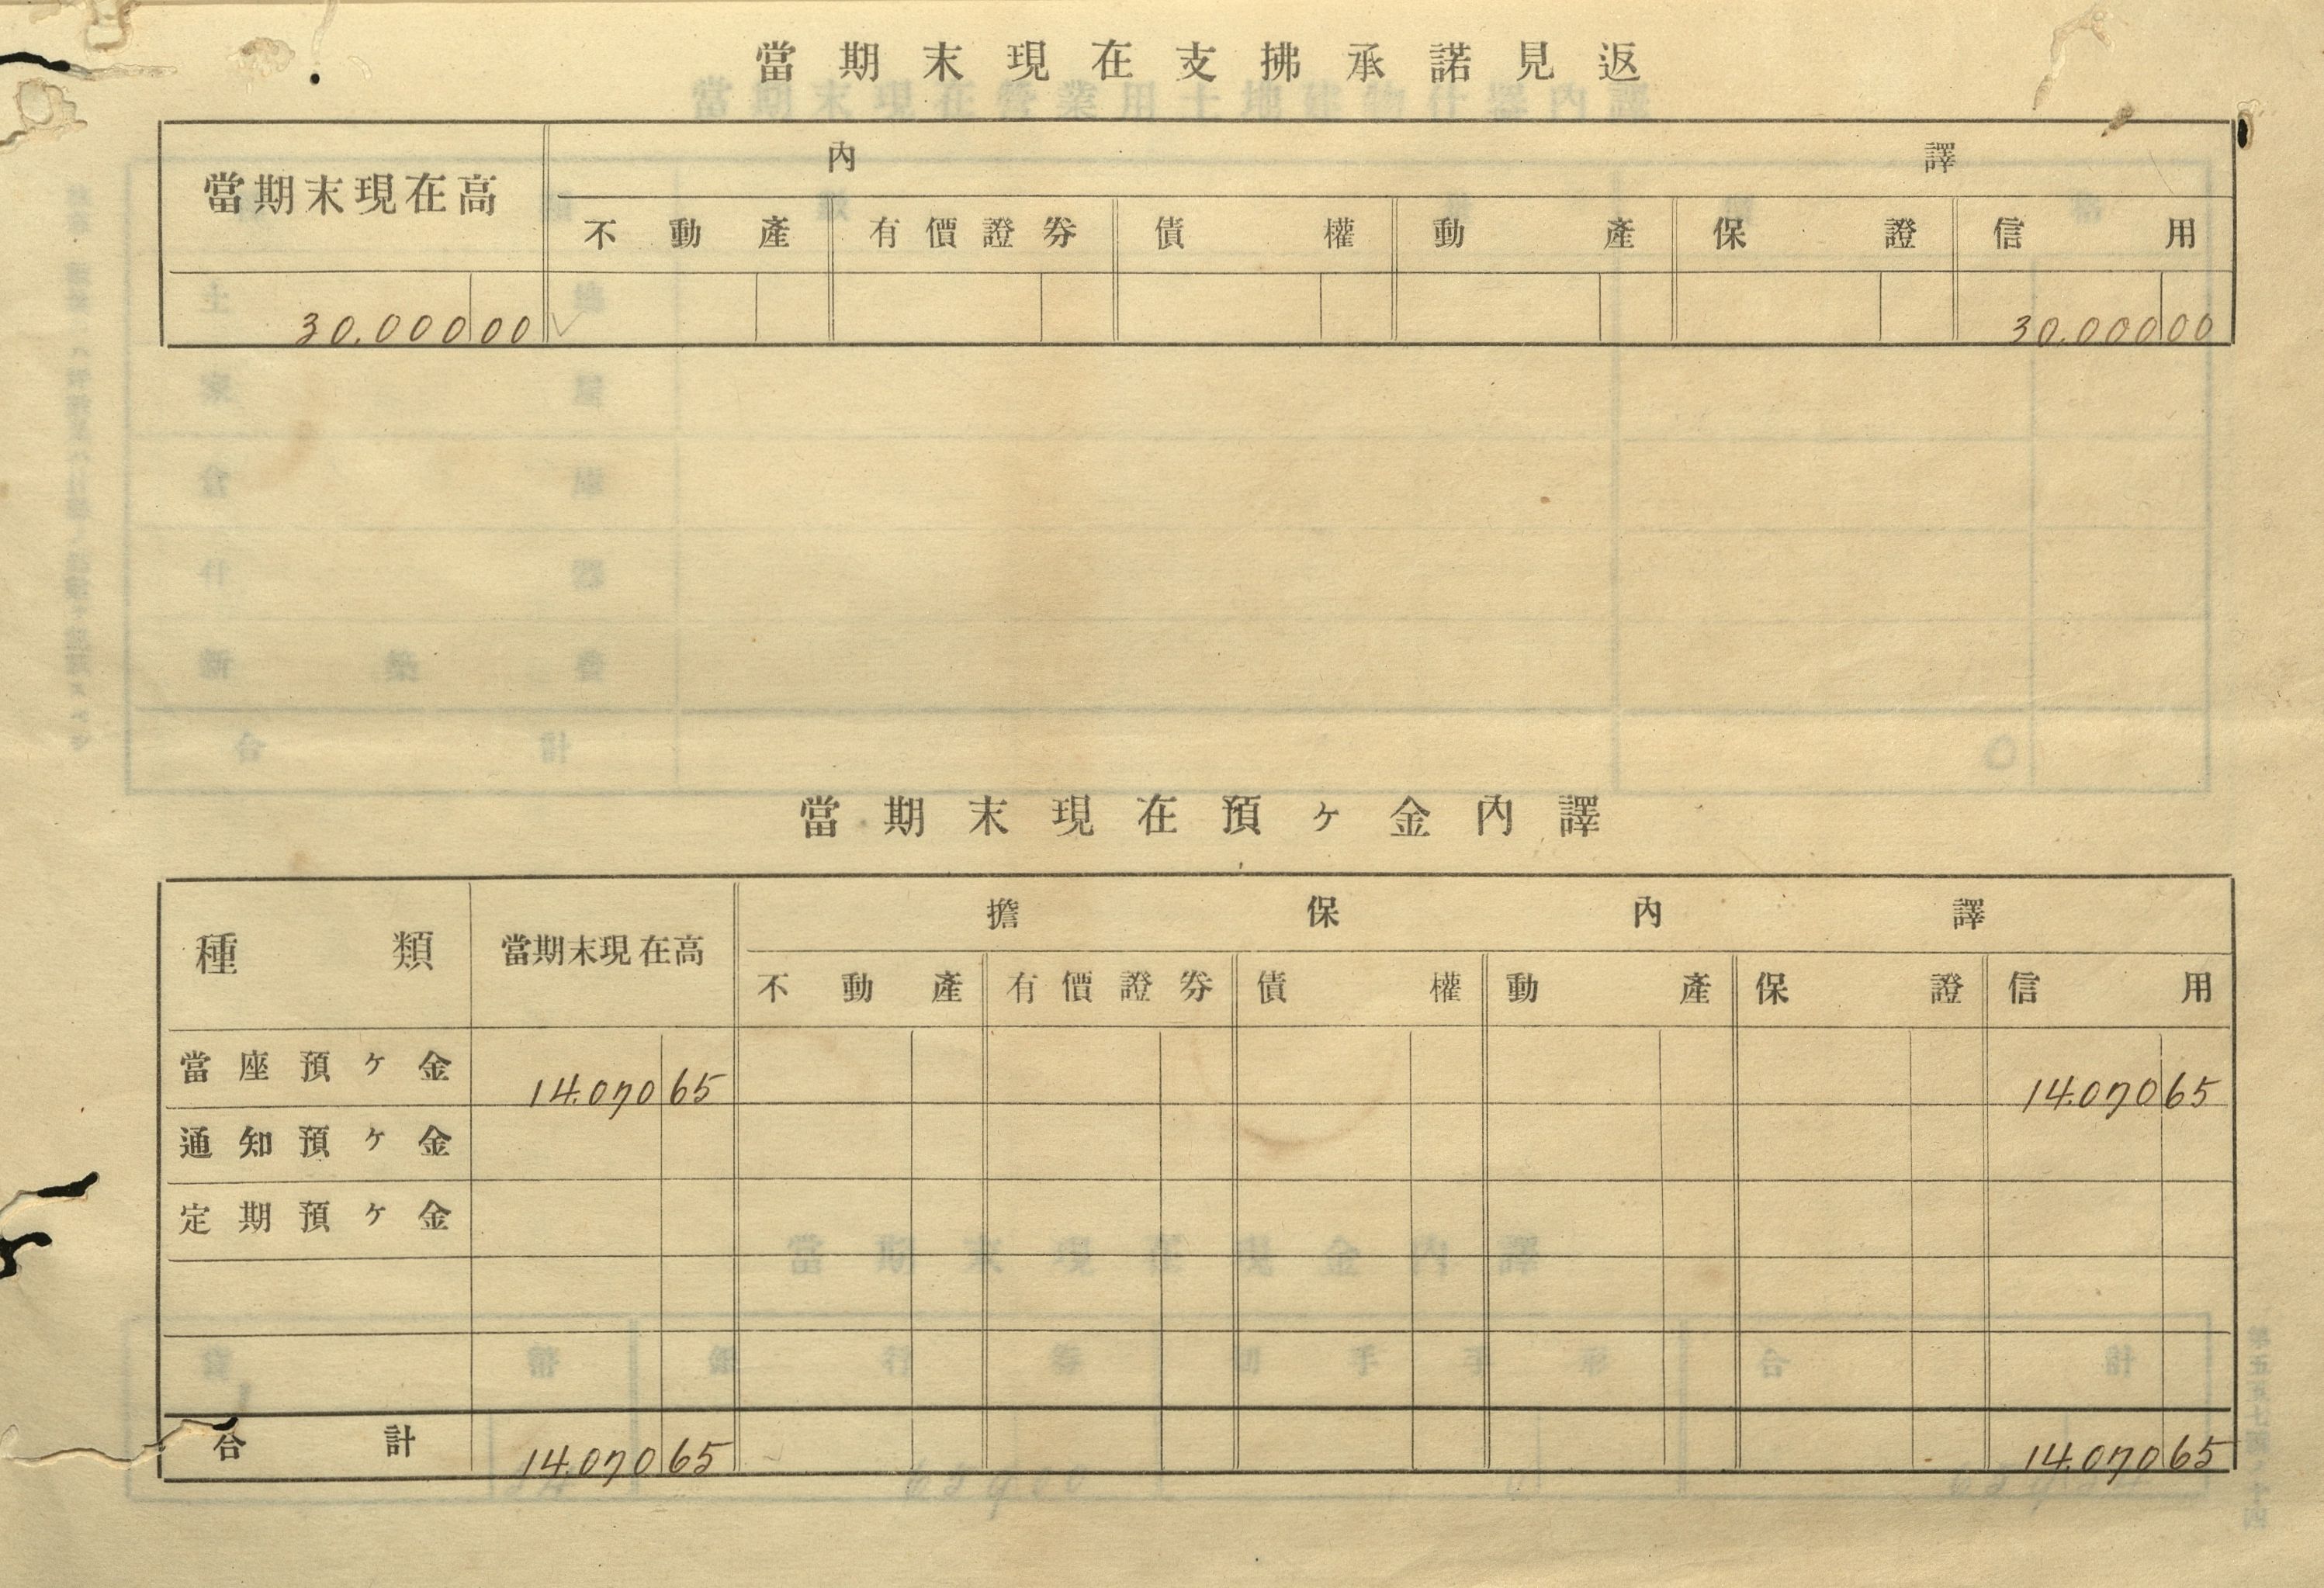 當期末現在支拂承諾見返
當期末現在高 內譯
不動產 有價證券 債權 動產 保證 信用
30.000 00 30.000 00
當期末現在預ヶ金內譯
種類 當期末現在高 擔保內譯
不動產 有價證券 債權 動產 保證 信用
當座預ヶ金 14.070 65 14.070 65
通知預ヶ金
定期預ヶ金
合計 14.070 65 14.070 65